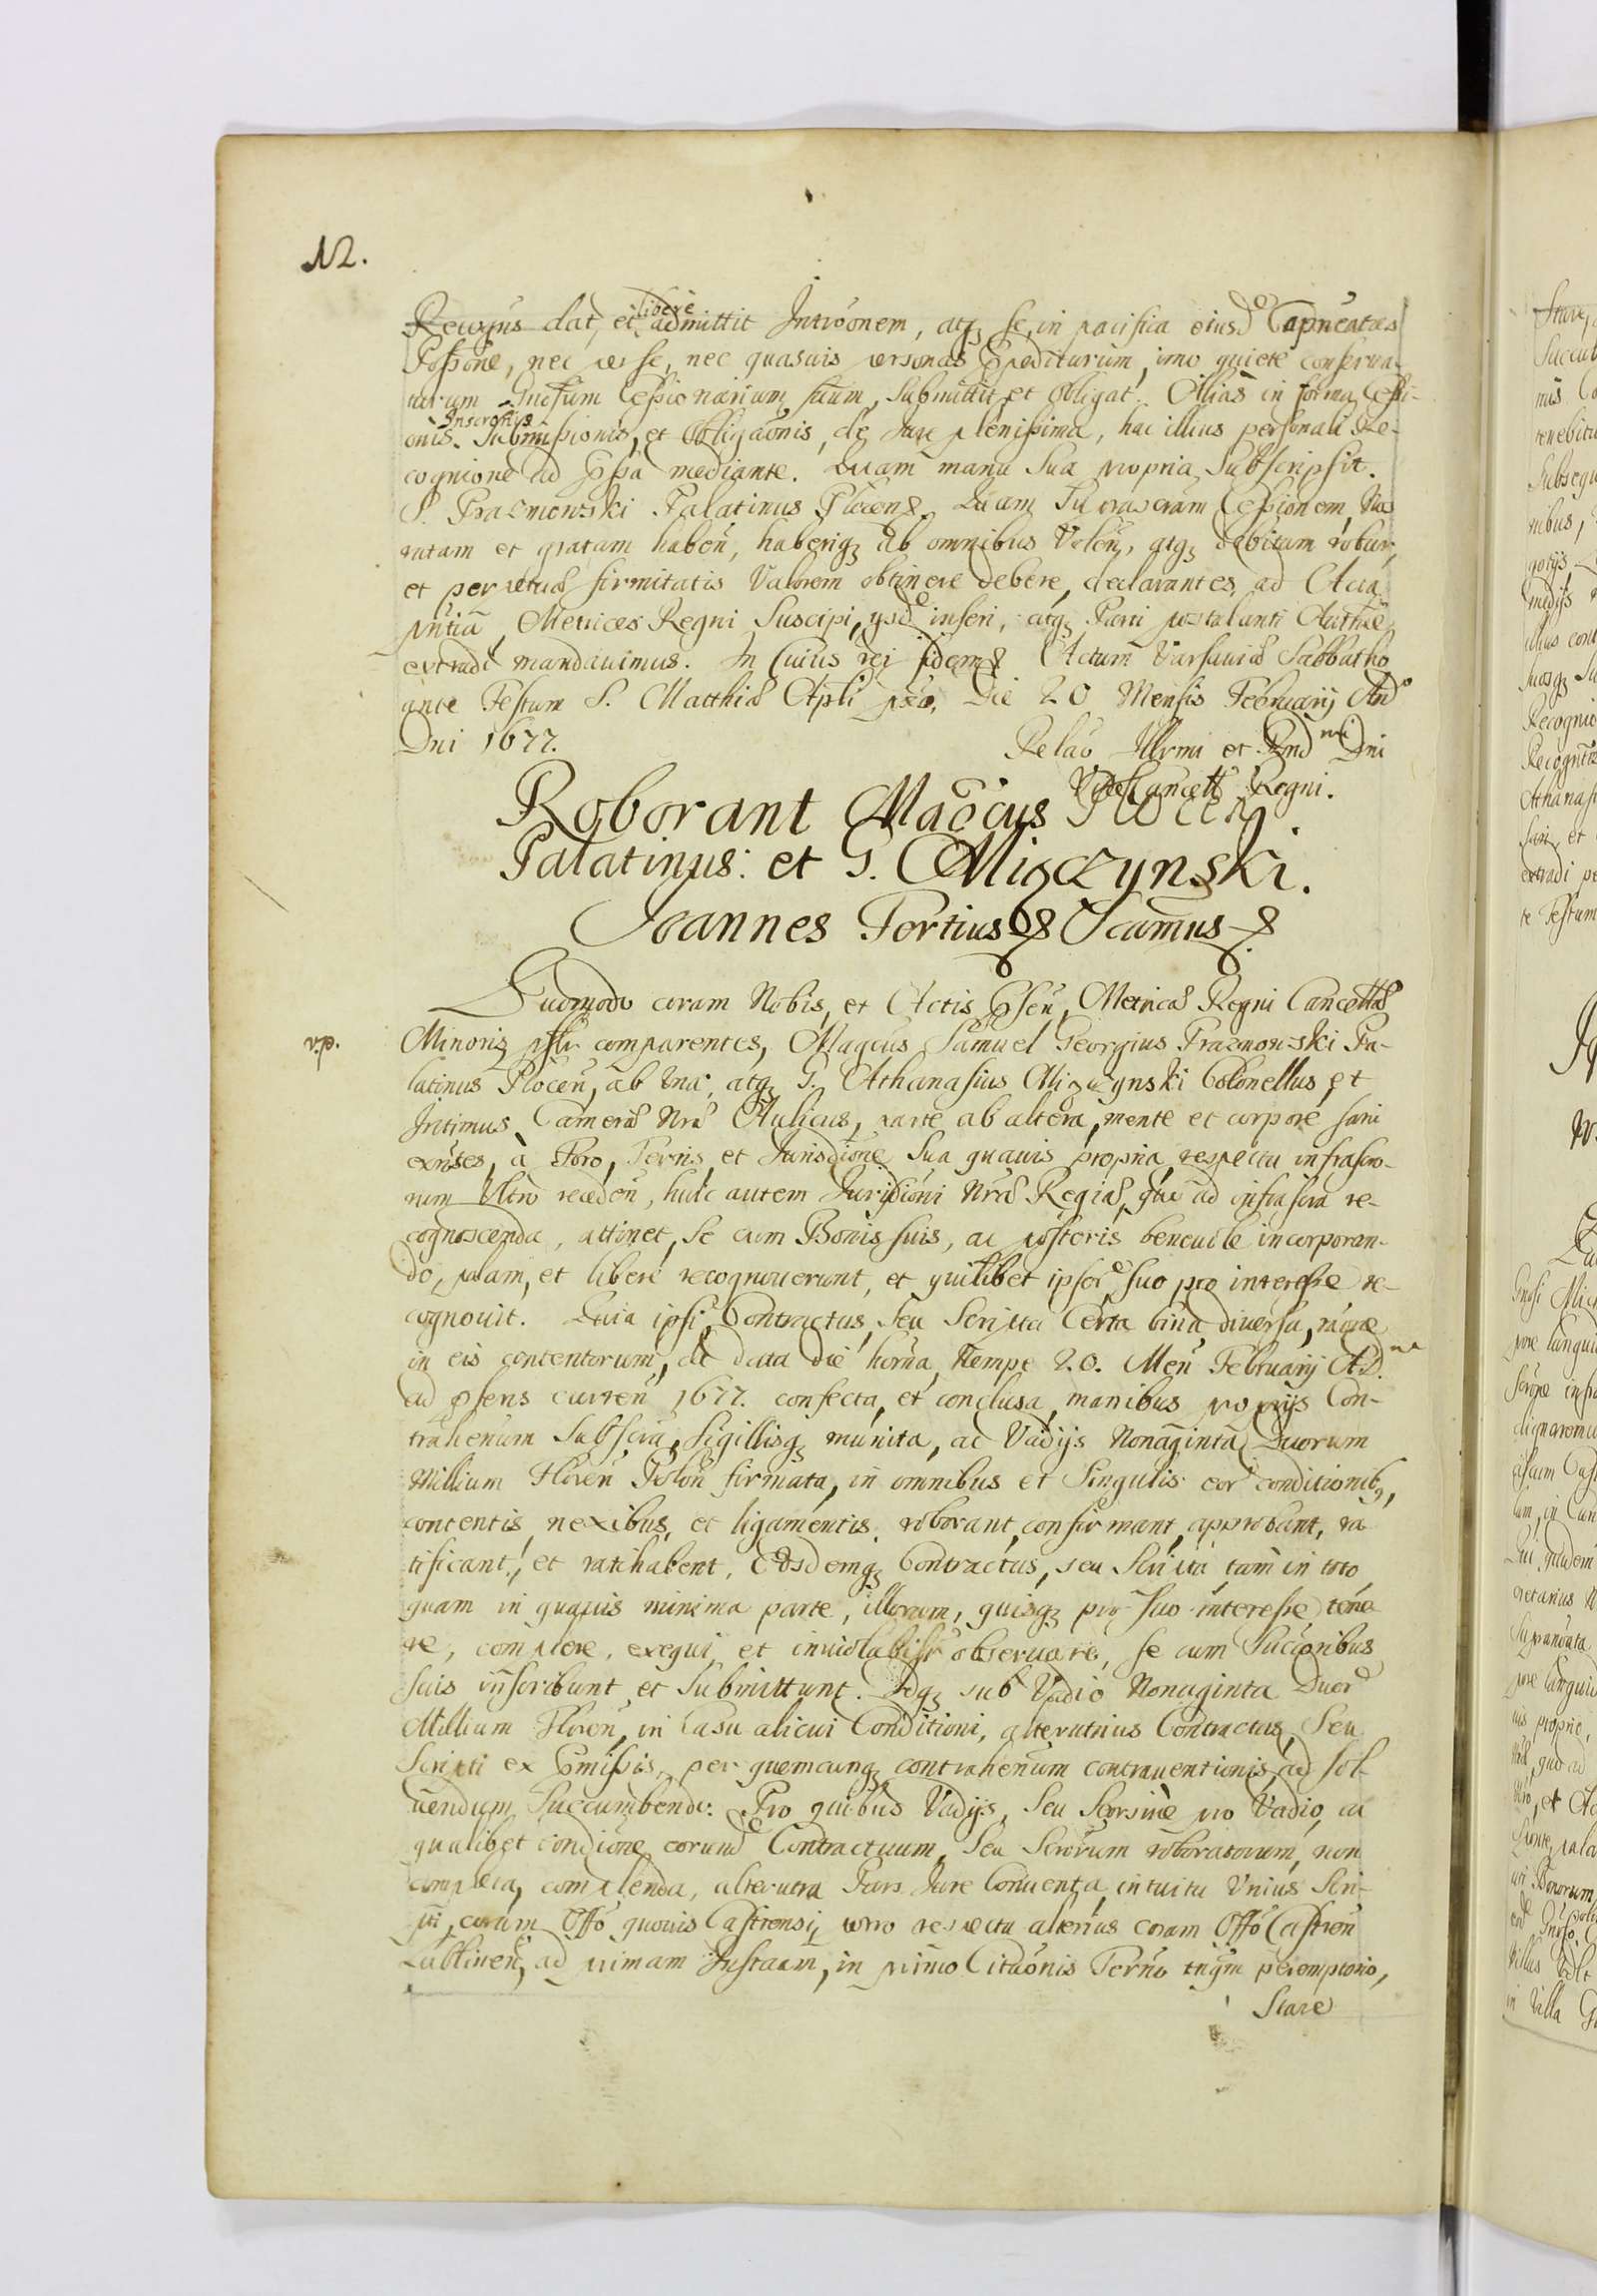 12.
Regius dat, et libere admittit Introonem, atq se in pacifica eiusd Capneatæs
Possone, nec per se, nec quasuis personas Impediturum, imo quiete conserua-
turum Dictum Cessionarium suum, submittit et obligat. Alias in forma Cessi-
onis. Inscronis Submissionis, et Obligaonis, de Jure plenissima, hac illius personali Re-
cognione ad Præssa mediante. Quam manu sua propria subscripsit.
S. Prazmowski Palatinus Plocens. Quam Suprascram Cessionem, Nos
ratam et gratam haben, haberiq ab omnibus Volen, atq debitum robur,
et perpetuæ firmitatis Valorem obtinere debere, declarantes, ad Acta
pntia, Metrices Regni Suscipi, ysd inseri, atq Parti postulanti Authe
extradi mandauimus. In Cuius rei fidem & Actum Varsauiæ Sabbatho
ante Festum S. Matthiæ Apli pxo, Die 20 Mensis Februarij And
Dni 1677. Relao Illrmi et Rnd mi Dni
Vice Cancell Regni.
Roborant Maocus Plocen.
Palatinus: et G. Miączynski.
Joannes Tertius & Scamus &
Quomodo coram Nobis, et Actis Præsen, Metricæ Regni Cancellæ
Minoris psltr comparentes, Magcus Samuel Georgius Prazmowski Pa-
latinus Plocen, ab Una; atq G. Athanasius Miączynski Colonellus, et
Intimus Cameræ Nræ Aulicus, parte ab altera, mente et corpore sani
exnstes, à Foro, Terris, et Jurisdione Sua quauis propria, respectu infrascro-
rum Ultro receden, huic autem Jurisdioni Nræ Regiæ, qua ad infrascra re-
cognoscenda, attinet, se cum Bonis suis, ac posteris beneuole incorporan-
do, palam, et libere recognouerunt, et quilibet ipsor suo pro interesse re-
cognouit. Quia ipsi Contractus, seu Scripta Certa bina diuersa, raone
in eis contentorum, de data die horna, Nempe 20. Men Februarij A.D. ne
ad præsens curren 1677. confecta, et conclusa, manibus proprijs Con-
trahenum Subscra, Sigillisq munita, ac Vadijs Nonaginta Duorum
Millium Floren Polon firmata, in omnibus et Singulis eor conditionibq,
contentis, nexibus, et ligamentis, roborant, confirmant, approbant, ra
tificant, et ratihabent. Eosdemq Contractus, seu Scripta, tam in toto
quam in quauis minima parte, illorum, quisq pro suo interesse tene
re, complere, exequi, et inuiolabiltr obseruare, se cum Succroribus
suis inscribunt et submittunt. Idq sub Vadio Nonaginta Duor
Millium Floren, in Casu alicui Conditioni, alterutrius Contractus, Seu
Scripti ex Præmissis, per quemcunq contrahenum contrauentionis, ad sol-
uendum Succumbendo. Pro quibus Vadijs, seu Seorsiue pro Vadio, ac
qualibet condione eorund Contractuum, Seu Scrorum roboratorum, non
completa, complenda, alterutra Pars Jure Conuenta, intuitu Unius Scri-
pti, coram Offo quouis Castrensi, uero respectu alterius coram Offo Castren
Lublinen, ad primam Instaam, in primo Citaonis Termo tnqm peremptorio,
Stare